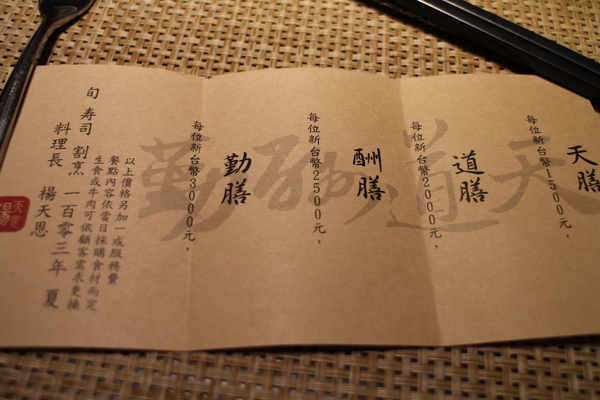 天道酬勤
天膳
每位新台幣1500元，
道膳
每位新台幣2000元，
酬膳
每位新台幣2500元，
勤膳
每位新台幣3000元，
以上價格另加一成服務費
餐點內容依當日採購食材而定
生食或牛肉可依顧客需求更換
旬 壽司 割烹 一百零三年 夏
料理長 楊天恩